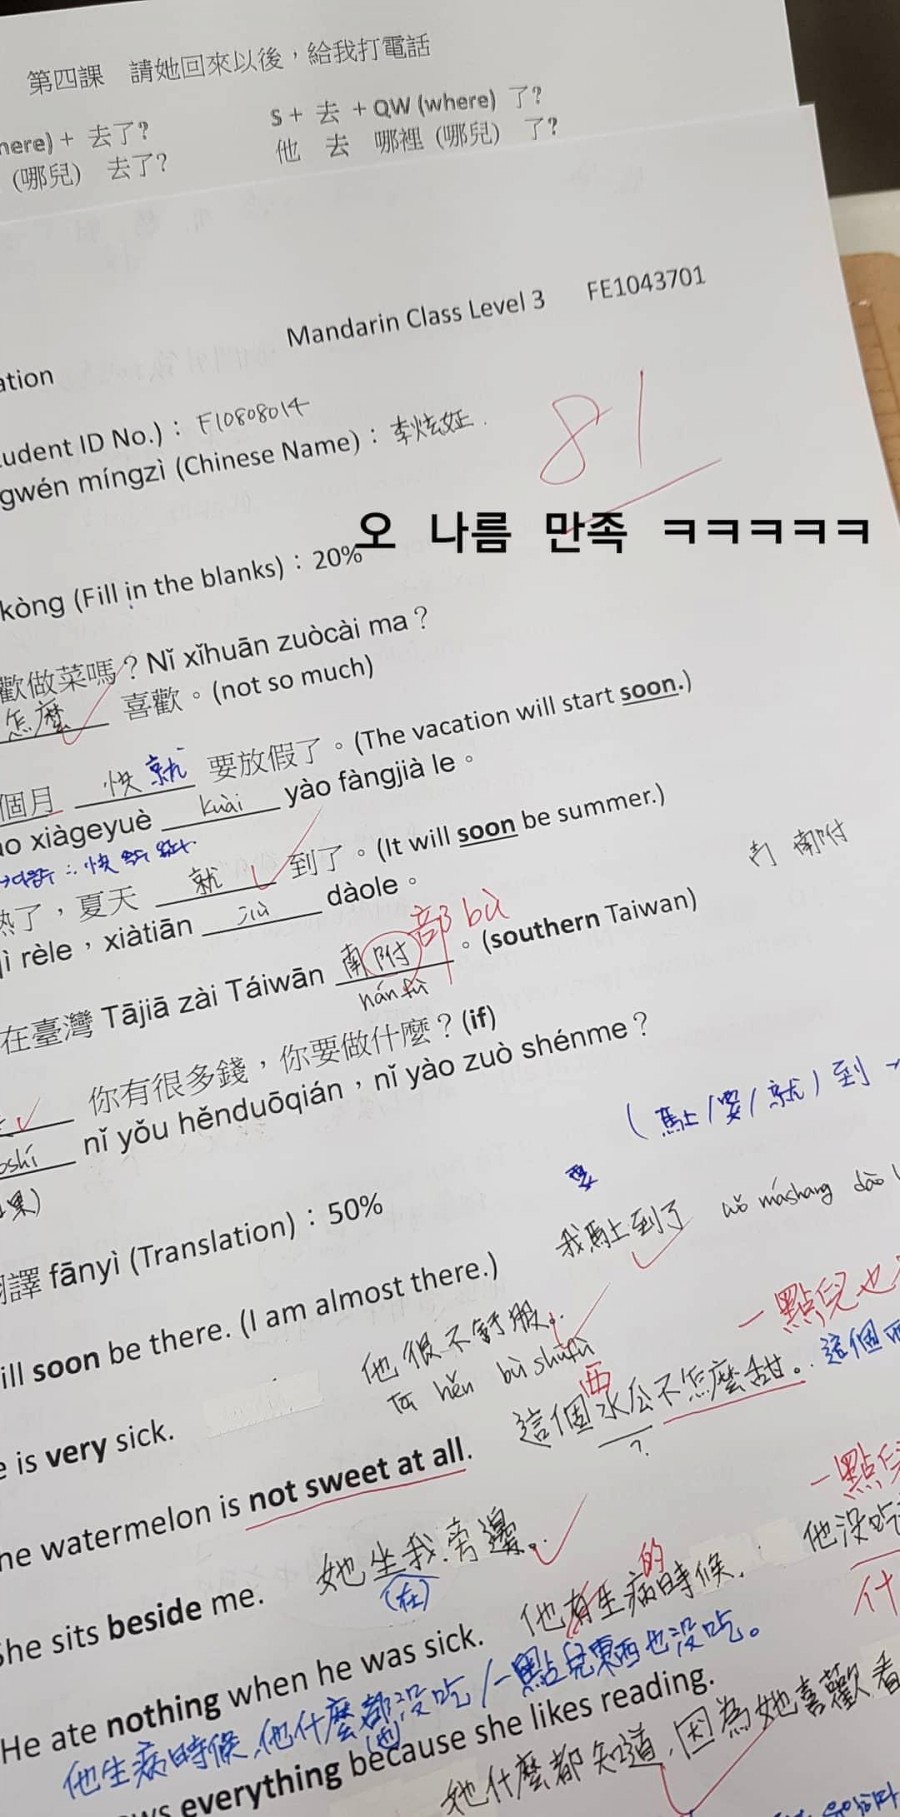 第四課 請她回來以後，給我打電話
here) + 去了? S + 去 + QW (where) 了?
(哪兒) 去了? 他 去 哪裡 (哪兒) 了?
Mandarin Class Level 3 FE1043701
ation
81
udent ID No.)： F10808014
gwén míngzì (Chinese Name)： 李炫姃
오 나름 만족 ㅋㅋㅋㅋㅋ
kòng (Fill in the blanks)：20%
歡做菜嗎？Nǐ xǐhuān zuòcài ma？
怎麼 喜歡。(not so much)
個月 快 就 要放假了。(The vacation will start soon.)
ao xiàgeyuè kuài yào fàngjià le。
熱了，夏天 就 到了。(It will soon be summer.)
ì rèle，xiàtiān jiù dàole。
南附
部 bù
在臺灣 Tājiā zài Táiwān 南附。(southern Taiwan)
nán fù
你有很多錢，你要做什麼？(if)
oshí nǐ yǒu hěnduōqián，nǐ yào zuò shénme？
果)
(馬上/要/就) 到
要
翻譯 fānyì (Translation)：50%
ill soon be there. (I am almost there.) 我馬上到了 wǒ mǎshang dào
e is very sick. 他很不舒服.
Tā hěn bù shūfù
一點兒也
he watermelon is not sweet at all. 這個水瓜不怎麼甜。 這個西
西
?
一點兒
She sits beside me. 她坐我旁邊。
(在)
He ate nothing when he was sick. 他有生病時候, 他沒吃
的
什
他生病時候,他什麼都沒吃/一點兒東西也沒吃。
(也)
ows everything because she likes reading.
她什麼都知道,因為她喜歡看